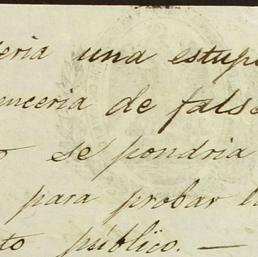 seria una estupi
enceria de false
se pondria
para probar l
to público. —